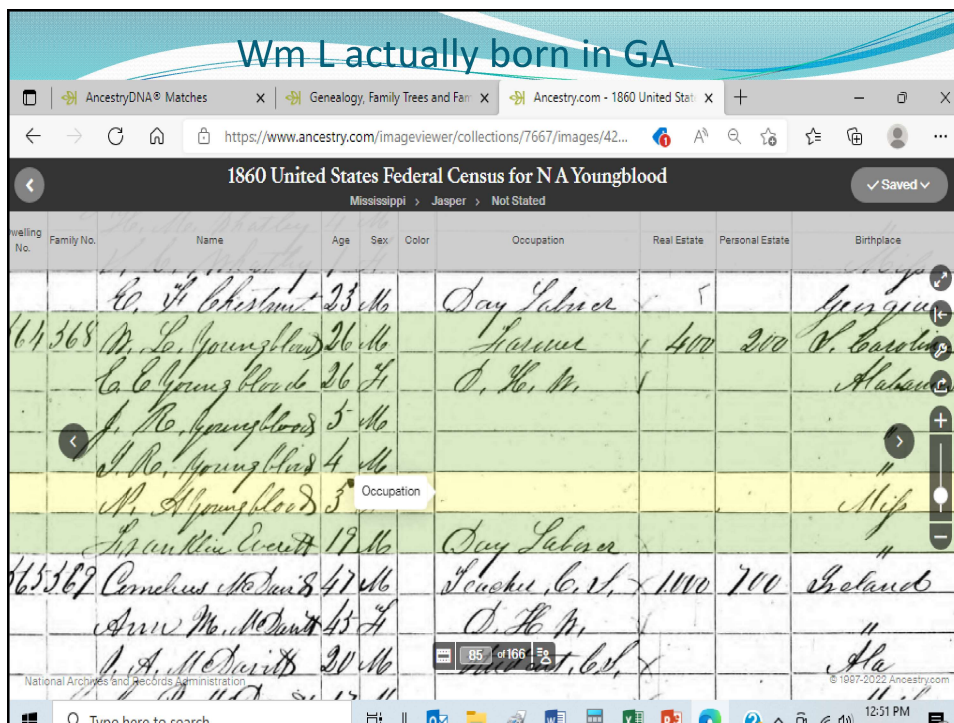 Wm L actually born in GA
AncestryDNA® Matches Genealogy, Family Trees and Fam Ancestry.com - 1860 United Stat
https://www.ancestry.com/imageviewer/collections/7667/images/42...
1860 United States Federal Census for N A Youngblood
Mississippi > Jasper > Not Stated
Saved
welling No. Family No. Name Age Sex Color Occupation Real Estate Personal Estate Birthplace
Miss
E. F. Chestnut 23 M Day Laborer Georgia
564 568 W. L. Youngblood 26 M Farmer 400 200 S. Carolina
E. E. Youngblood 26 F D. H. W. Alabama
J. R. Youngblood 5 M
J. R. Youngblood 4 M "
N. A Youngblood 3 Occupation Miss
Franklin Everett 19 M Day Laborer "
565 569 Cornelius McDavitt 47 M Teacher, C. S, 1000 700 Ireland
Ann M. McDavitt 45 F D. H. W, "
J. A. McDavitt 20 M C,S, Ala
85 of 166
National Archives and Records Administration © 1997-2022 Ancestry.com
Type here to search 12:51 PM